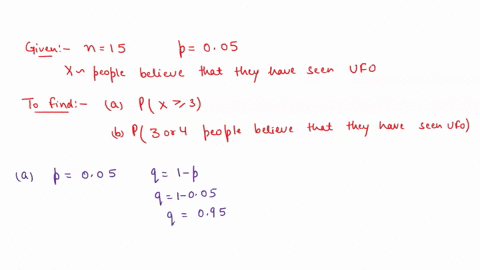 Given:- n=15 p=0.05
X~ people believe that they have seen UFO
To find:- (a) P(x≥3)
(b) P(3 or 4 people believe that they have seen UFO)
(a) p=0.05 q=1-p
q=1-0.05
q=0.95